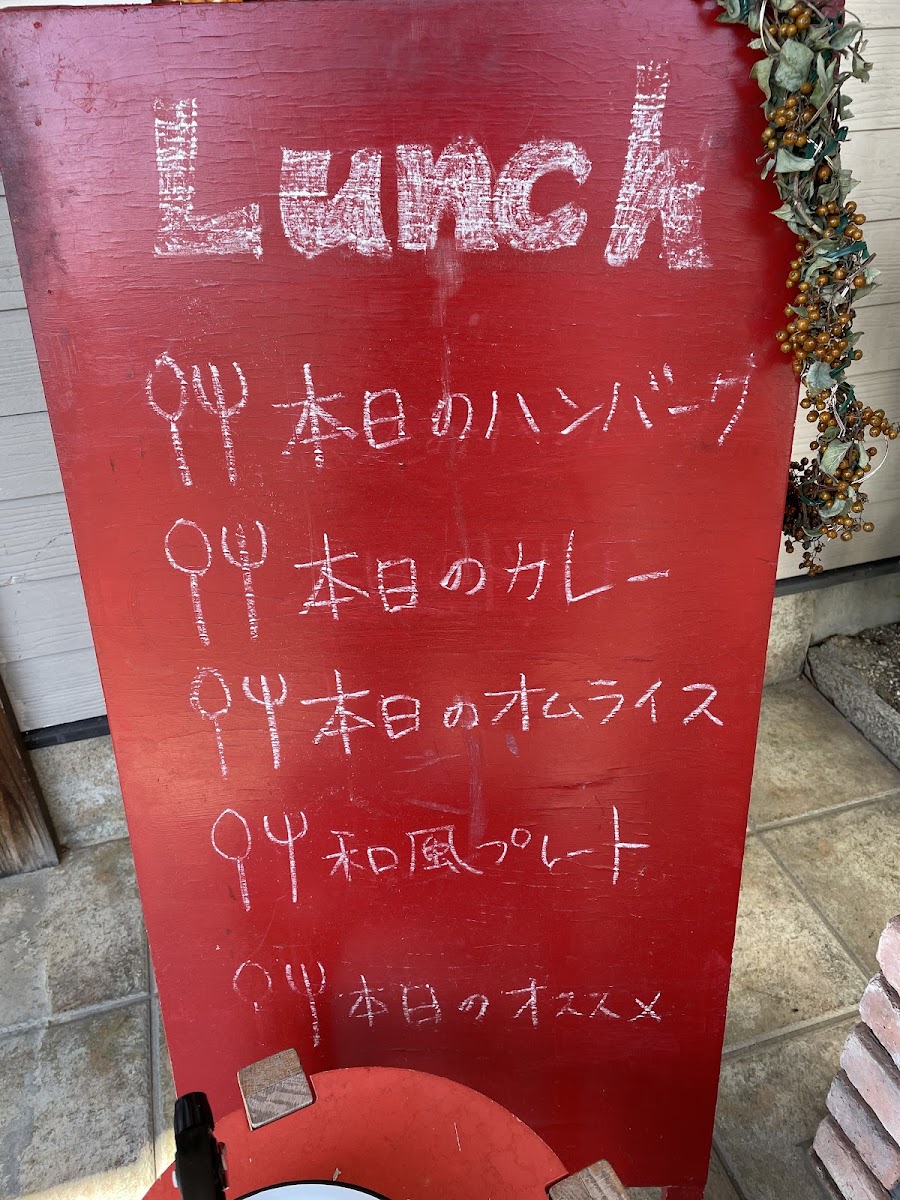 Lunch
本日のハンバーグ
本日のカレー
本日のオムライス
和風プレート
本日のオススメ